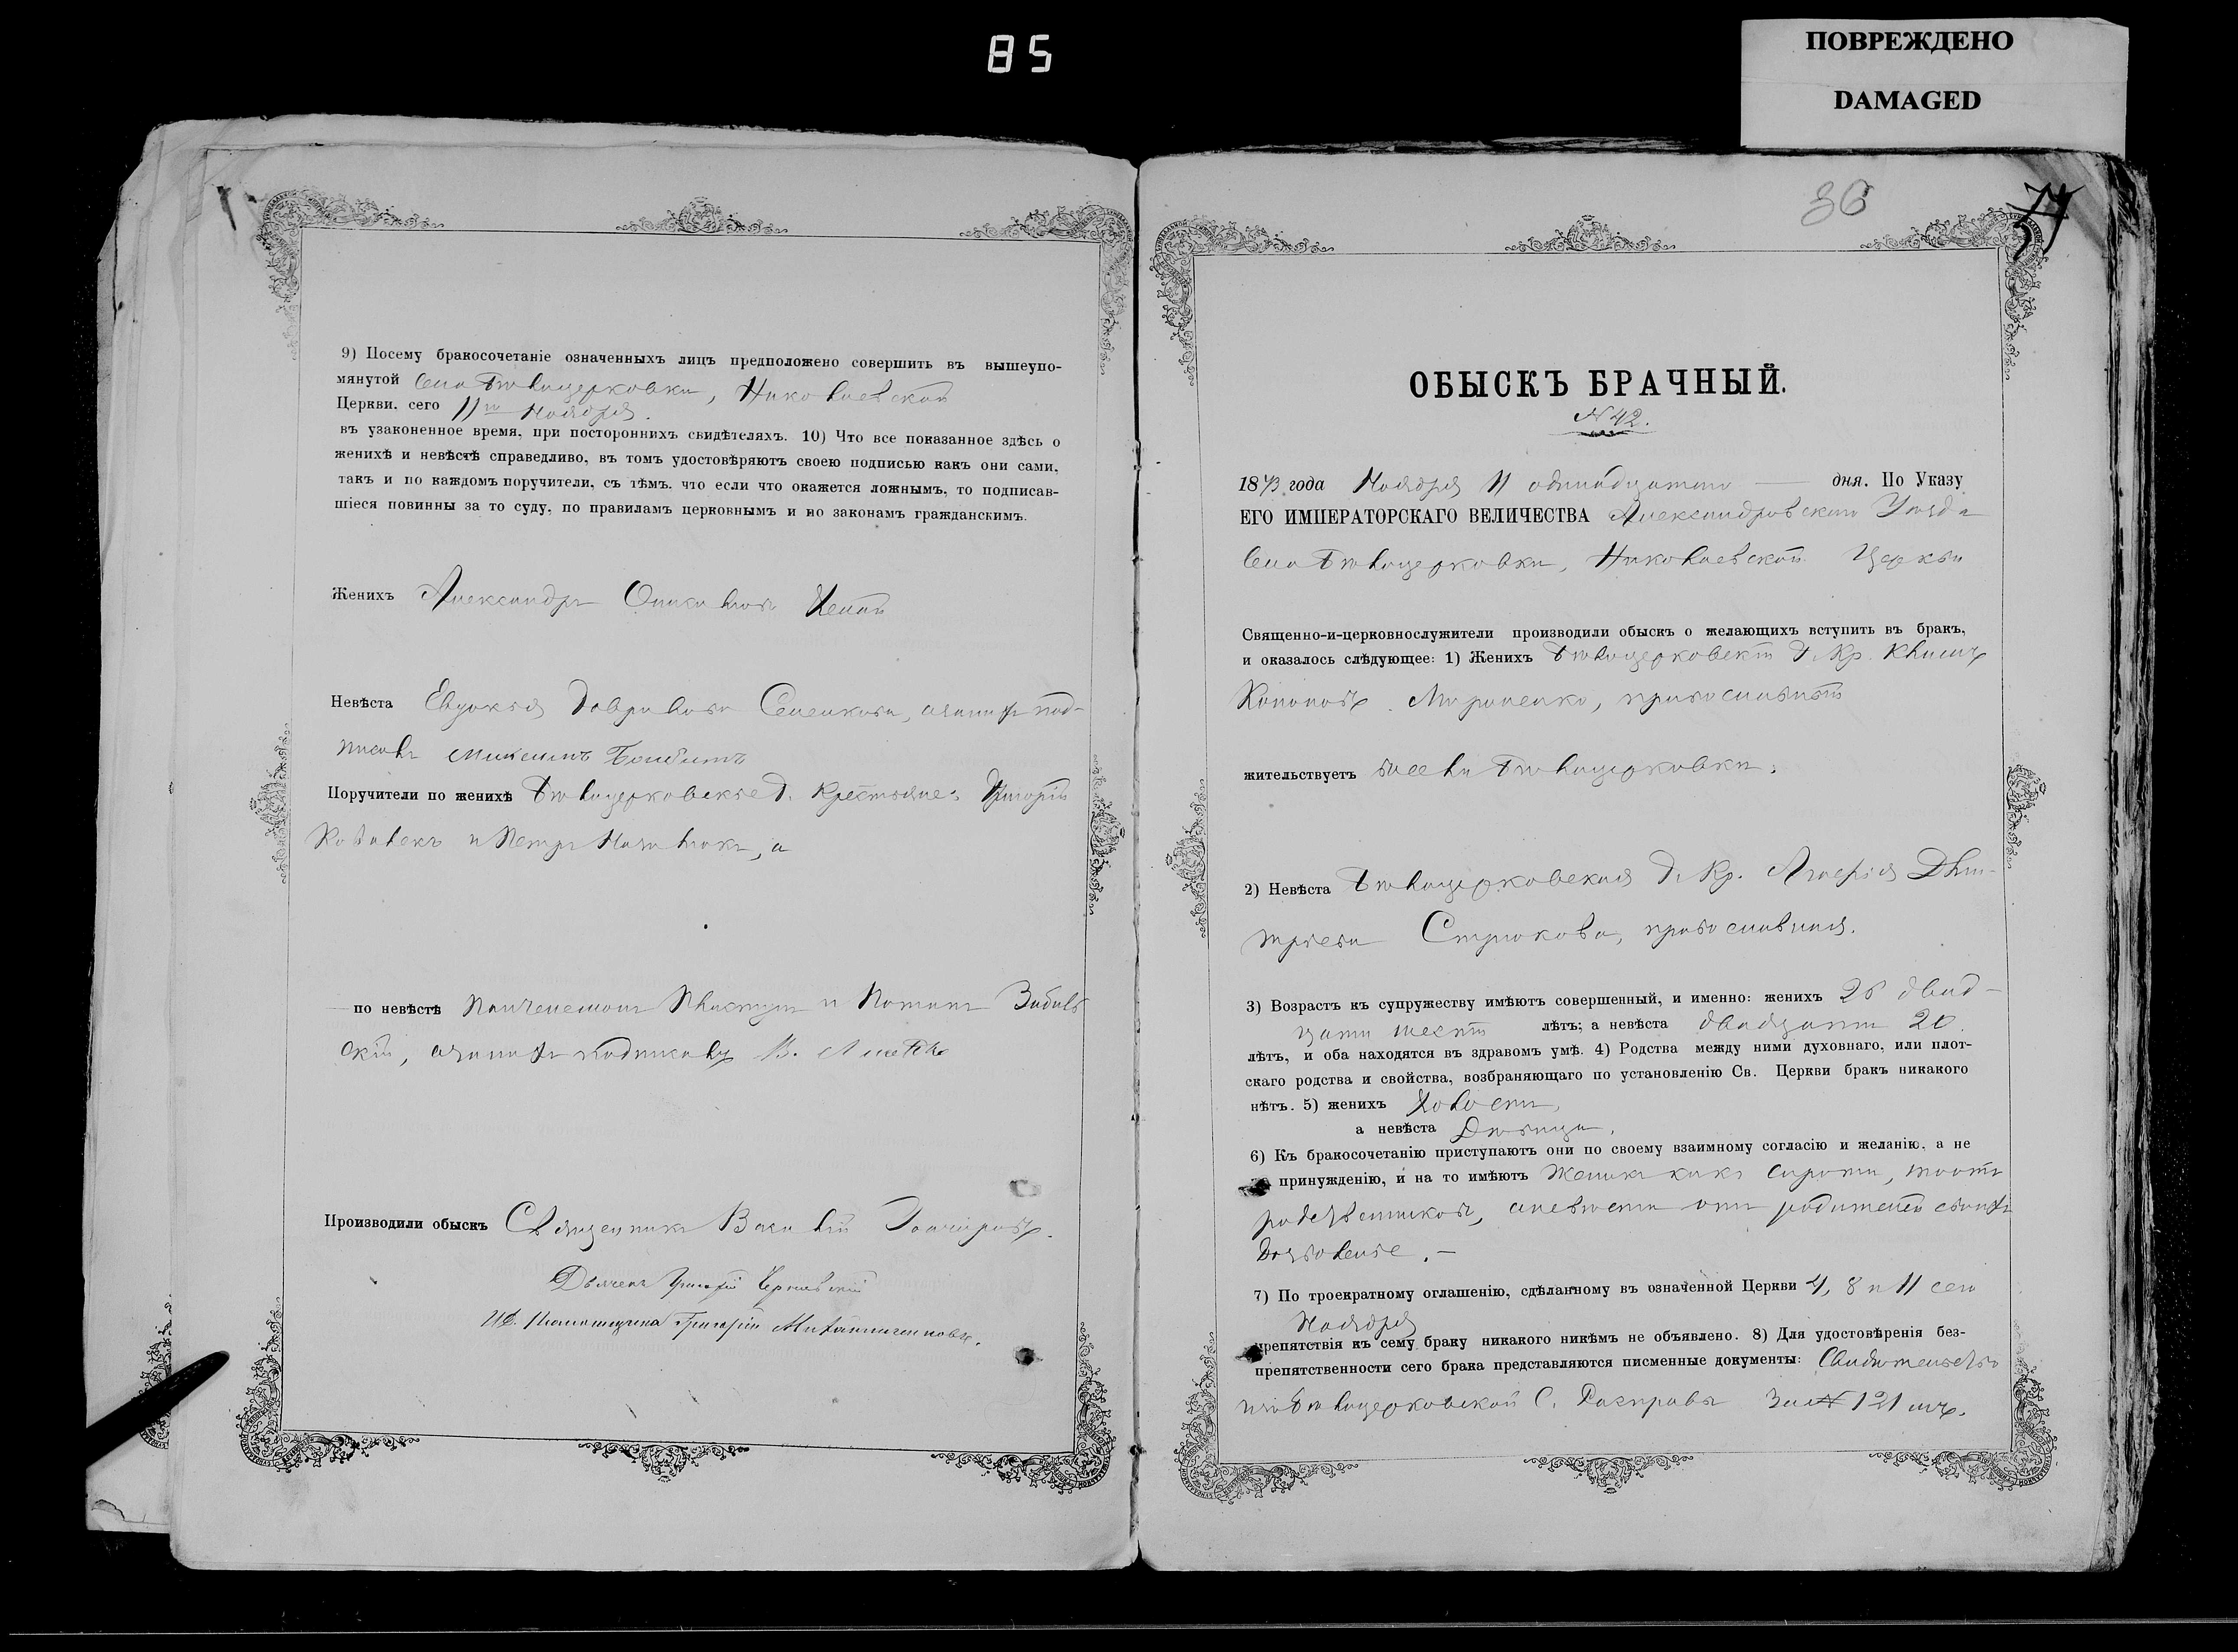 85
ПОВРЕЖДЕНО
DAMAGED
9) Посему бракосочетаніе означенныхъ лицъ предположено совершить въ вышеупо-
мянутой Села Бѣлоцерковки, Николаевской
Церкви. сего 11го Ноября.
въ узаконенное время, при постороннихъ свидѣтеляхъ. 10) Что все показанное здѣсь о
женихѣ и невѣстѣ справедливо, въ томъ удостовѣряютъ своею подписью какъ они сами,
такъ и по каждомъ поручители, съ тѣмъ. что если что окажется ложнымъ, то подписав-
шіеся повинны за то суду, по правиламъ церковнымъ и по законамъ гражданскимъ.
Женихъ Александръ
Невѣста Евдокія под-
писалъ
Поручители по женихѣ Бѣлоцерковскіе Г. Крестьяне: Григорій
и Петръ а
по невѣстѣ и
скій,
Производили обыскъ Священникъ Василій
Дьячекъ Григорій
И.д. Пономаря Григорій
36
37
ОБЫСКЪ БРАЧНЫЙ.
№ 42.
1873 года Ноября 11 одинадцатого дня. По Указу
ЕГО ИМПЕРАТОРСКАГО ВЕЛИЧЕСТВА Александровскаго Уѣзда
Села Бѣлоцерковки, Николаевской Церкви
Священно-и-церковнослужители производили обыскъ о желающихъ вступить въ бракъ,
и оказалось слѣдующее: 1) Женихъ Бѣлоцерковскій Г. Кр. Климъ
Кононовъ Мироненко, православный
жительствуетъ въ селѣ Бѣлоцерковки.
2) Невѣста Бѣлоцерковская Г. Кр. Дми-
тріева Стрюкова, православная.
3) Возрастъ къ супружеству имѣютъ совершенный, и именно: женихъ 26 двад-
цати шесть лѣтъ; а невѣста двадцать 20.
лѣтъ, и оба находятся въ здравомъ умѣ. 4) Родства между ними духовнаго, или плот-
скаго родства и свойства, возбраняющаго по установленію Св. Церкви бракъ никакого
нѣтъ. 5) женихъ Холостъ,
а невѣста Дѣвица.
6) Къ бракосочетанію приступаютъ они по своему взаимному согласію и желанію, а не
принужденію, и на то имѣютъ Женихъ какъ сирота,
родственниковъ, а невѣста отъ родителей своихъ
дозволеніе.
7) По троекратному оглашенію, сдѣланному въ означенной Церкви 4, 8 и 11 сего
Ноября
препятствія къ сему браку никакого никѣмъ не объявлено. 8) Для удостовѣренія без-
препятственности сего брака представляются писменные документы: Свидѣтельство
изъ Бѣлоцерковской С. Расправы за № 121мъ.